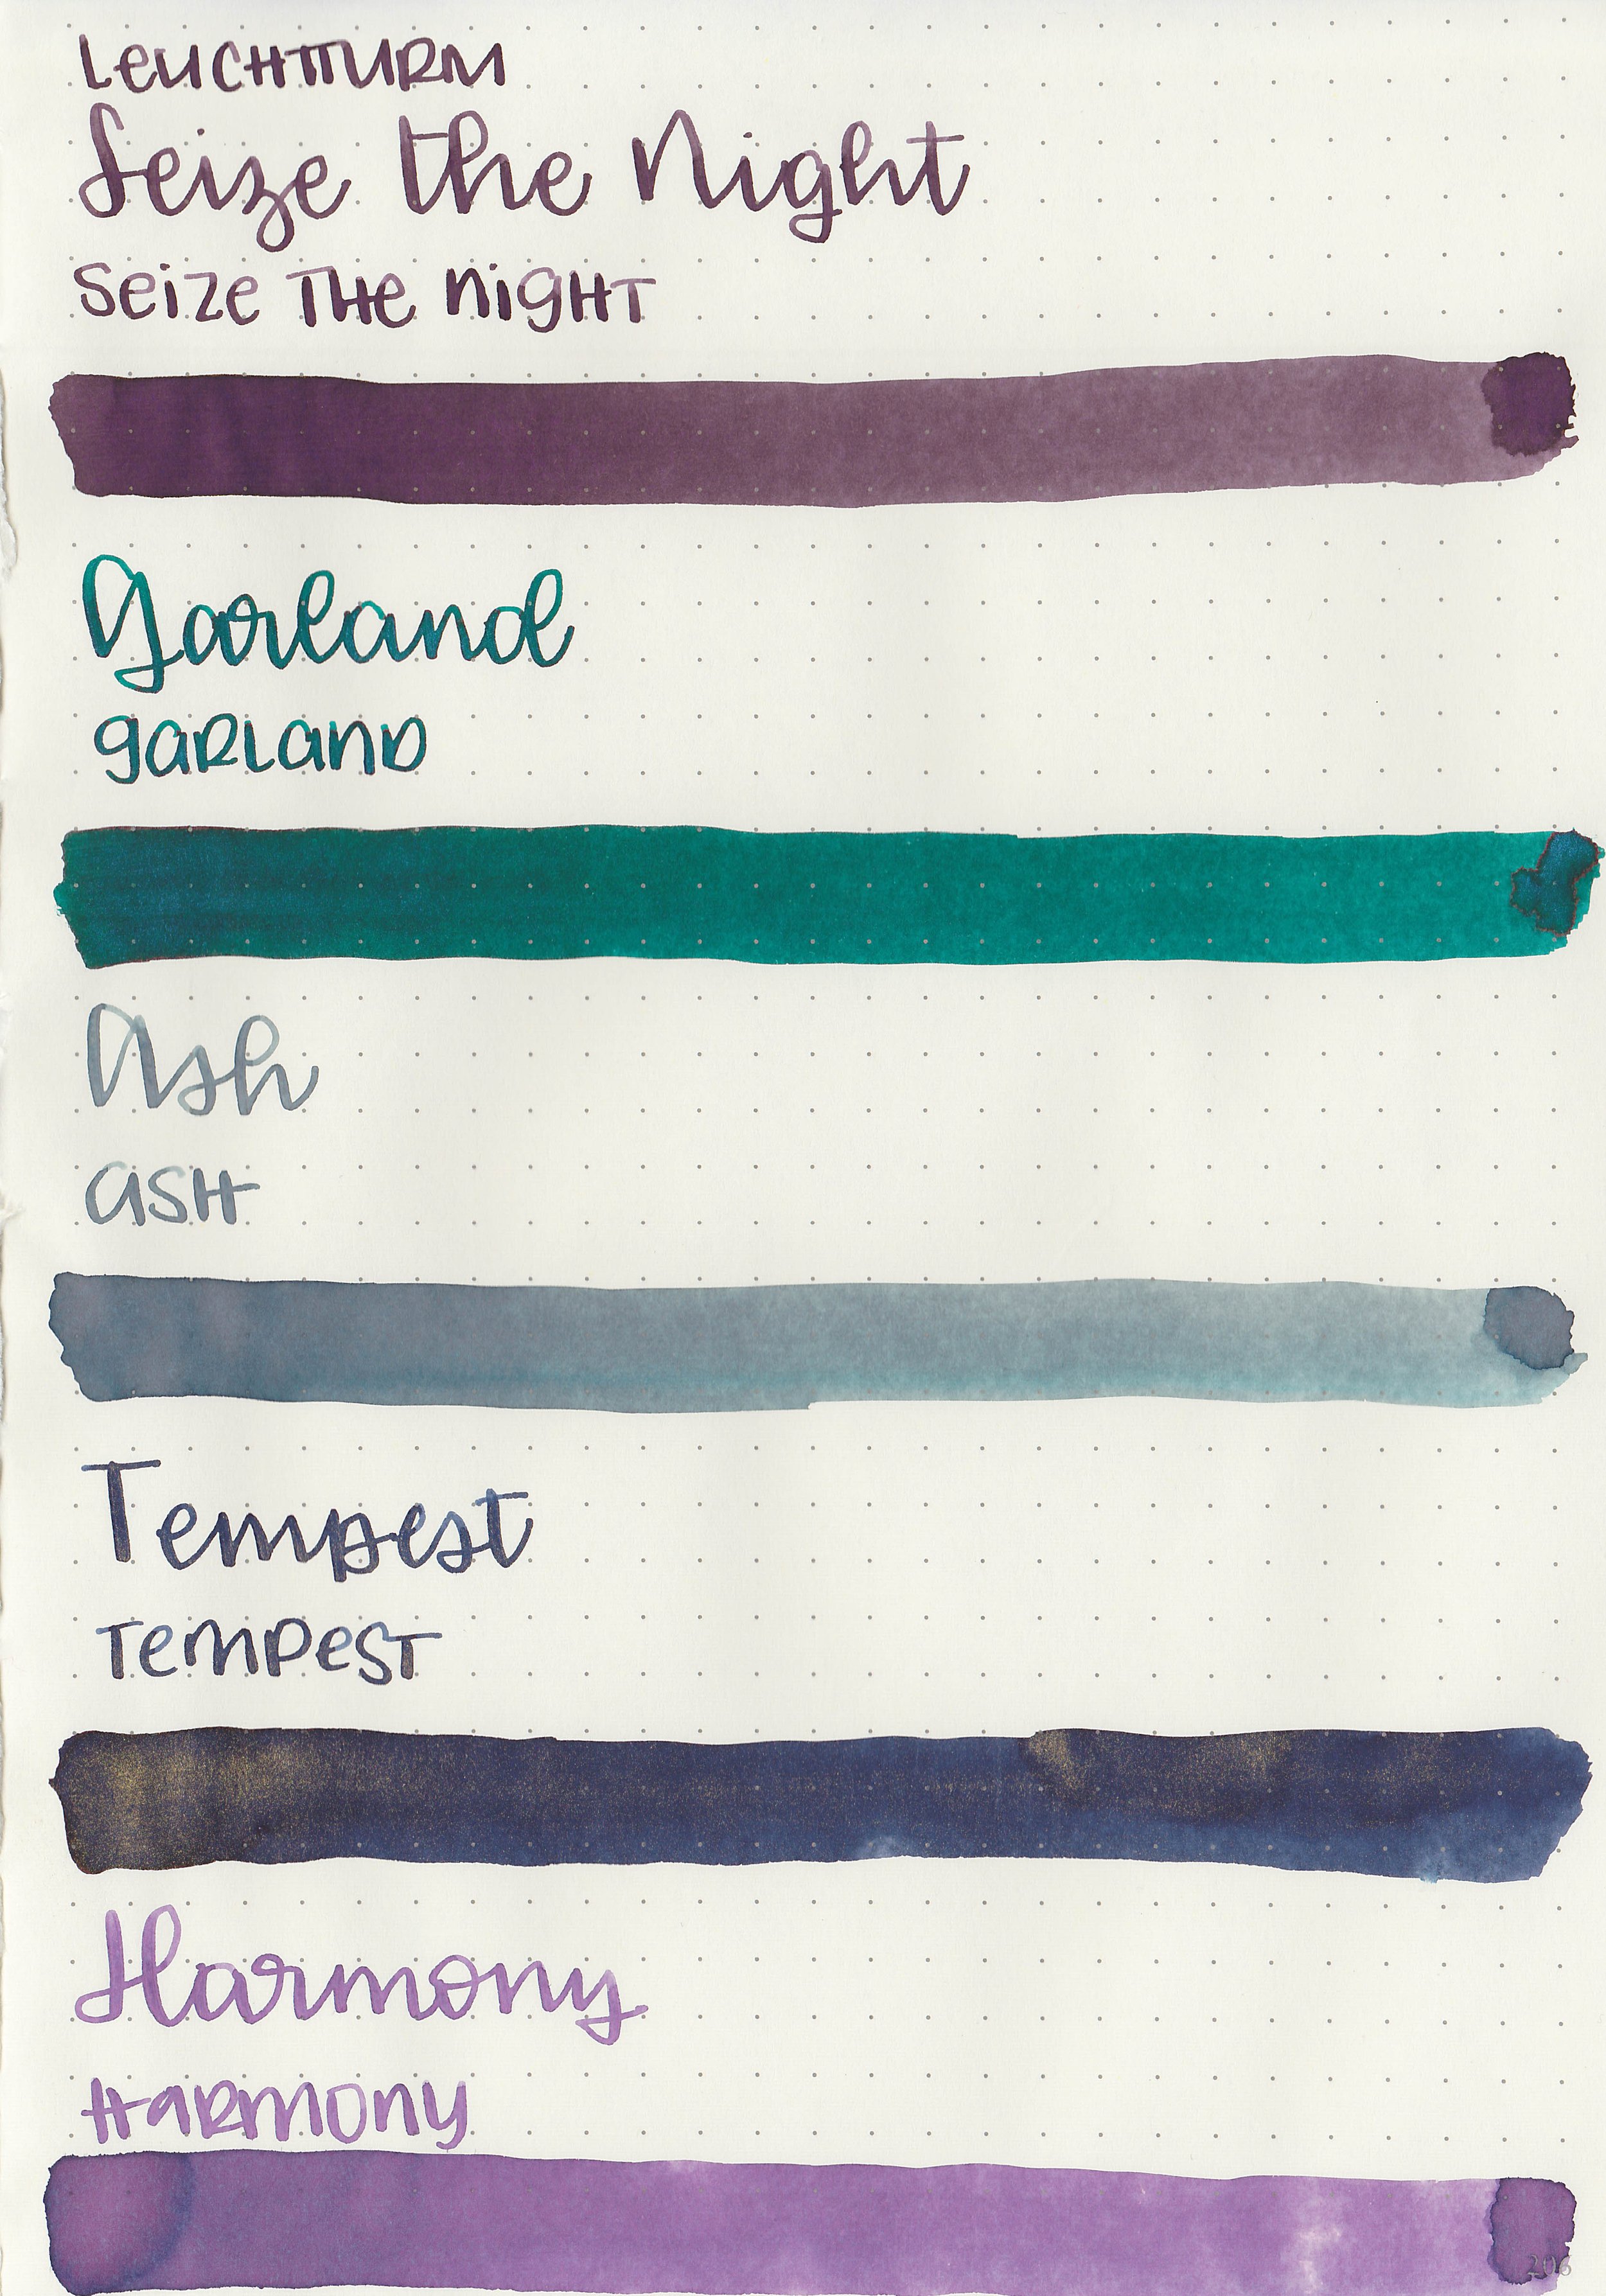 LEUCHTTURM
Seize the Night
Seize THe NigHT
Garland
gARLAND
Ash
ASH
Tempest
TemPeST
Harmony
HARMONY
206